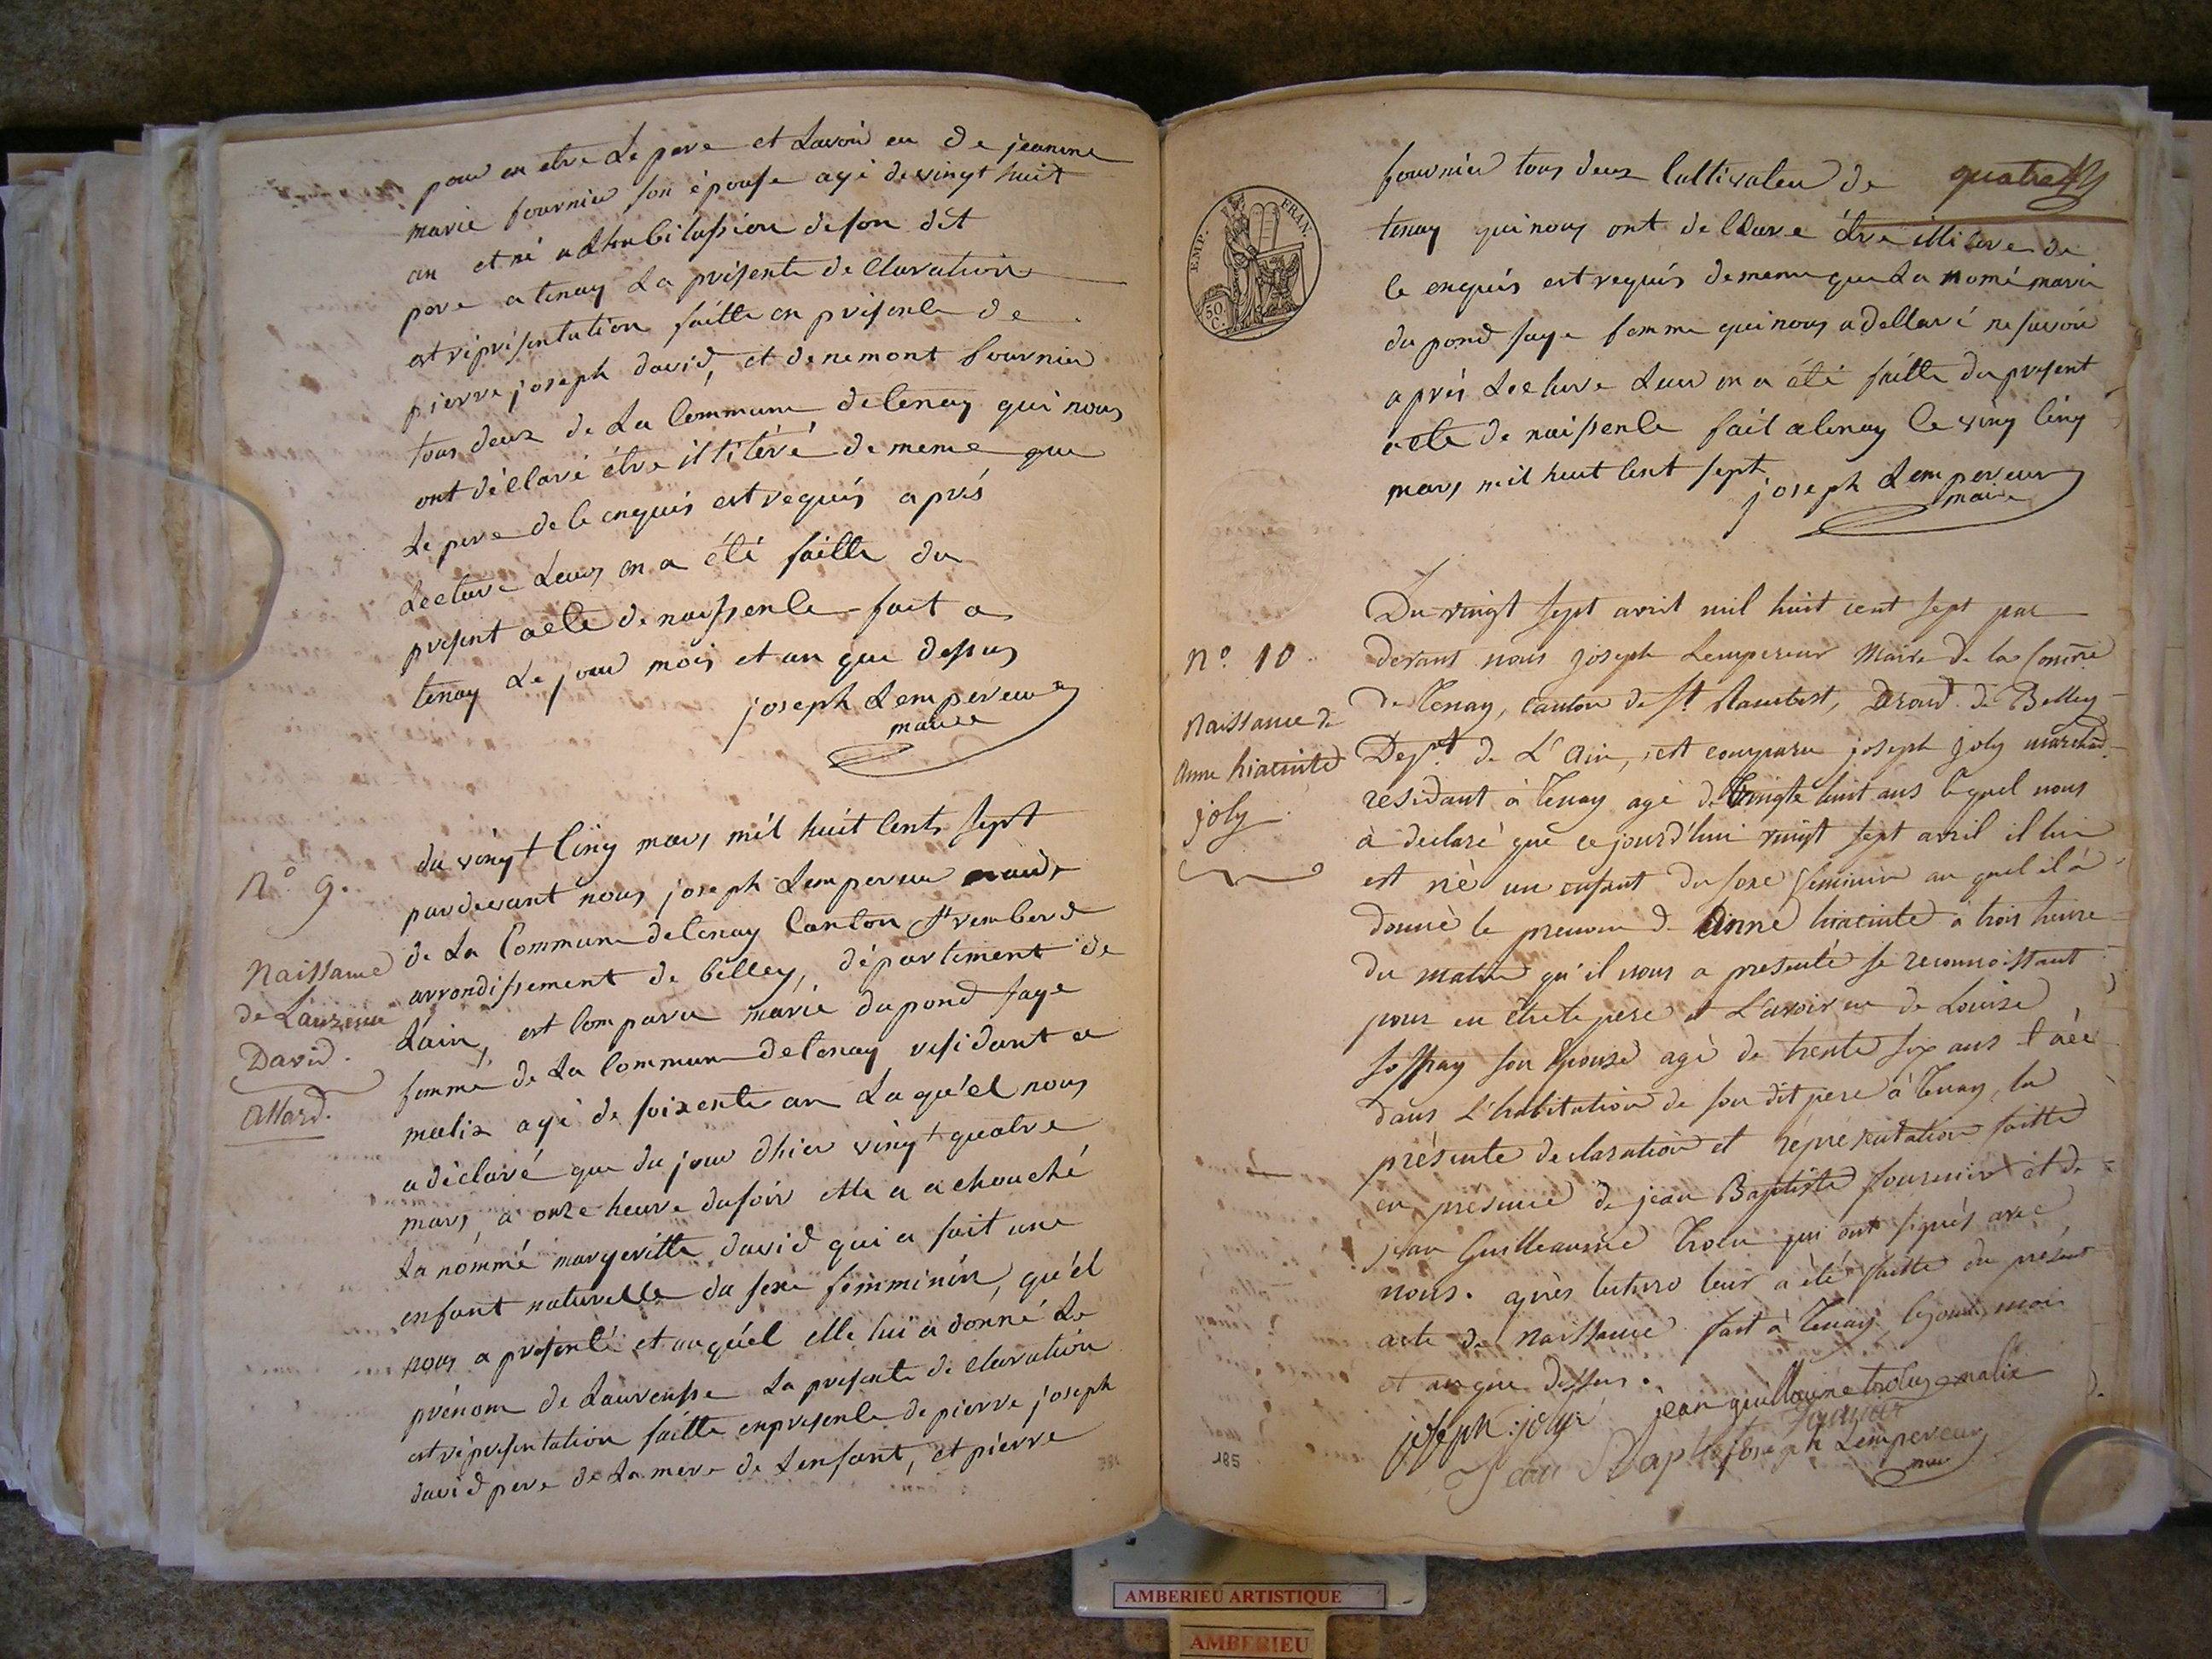 pour en etre Le pere et Lavoir eu de jeanne
marie fournier son épouse agé de vingt huit
an et né a Lhabitassion de son dit
pere a tenay La présente declaration
est réprésentation faitte en présence de
pierre joseph david, et de nemont fournier
tous deux de La Commune de tenay qui nous
ont déclaré étre illitéré de meme que
Le pere de ce enquis est requis aprés
Lecture Leurs en a été faitte du
present acte de naissence fait a
tenay Le jour mois et an que dessus
joseph Lempereur
maire
N.o 9.
Naissance
de Laurence
David.
allard.
du vingt cinq mars mil huit cents sept
pardevant nous joseph Lempereur maire
de La Commune de tenay Canton St rembert
arrondissement de belley, département de
L'ain, est comparu marie dupond sage
femme de La Commune de tenay residant a
malix agé de soixente an Laqu'el nous
a déclaré que du jour dhier vingt quatre
mars, a onze heure du soir elle a achouché
La nommé margeritte david qui a fait une
enfant naturelle du sexe femminin, qu'el
nous a presenté et auqu'el elle lui a donné Le
prénom de Laurensse La presente declaration
est répresentation faitte en presence de pierre joseph
david pere de La mere de Lenfant, et pierre
EMP. FRAN.
50 C.
quatre
fournier tous deux Cultivateu de
tenay qui nous ont declare étre illitere de
ce enquis est requis de meme que La nomé marie
du pond sage femme qui nous a dellaré ne savoir
aprés Lecture Leur en a été faitte du present
acte de naissence fait a tenay le ving cinq
mars mil huit cent sept
joseph Lempereur
maire
N.o 10.
Naissance de
anne hiacinte
joly
Du vingt sept avril mil huit cent sept par
devant nous joseph Lempereur Maire de la Comme
de Tenay, canton de St Rambert, arond. de Belley
Dept. de L'Ain, est comparu joseph joly marchad.
residant à Tenay agé de vingte huit ans lequel nous
à declaré que cejourd'hui vingt sept avril il lui
est né un enfant du sexe feminin au quel il à
donné le prenom d. anne hiacinte à trois heure
du matin qu'il nous a presenté se reconnoissant
pour en être le pere et L'avoir eu de Louise
son épouse agé de trente six ans
dans L'habitation de son dit pere à Tenay, la
présente declaration et représentation faitte
en presence de jean Baptiste fournier et de
jean Guilleaume Trolu qui ont signés avec
nous. après lecture leur a été faitte du présent
acte de Naissance fait à Tenay, le jour, mois
et an que dessus.
joseph joly jean guillaume troluz malix
Jean Baptiste fournier
joseph Lempereur
185
AMBERIEU ARTISTIQUE
AMBERIEU